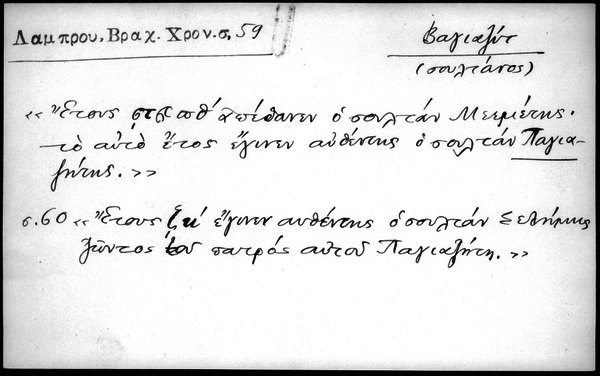 Λαμπρου, Βραχ. Χρον.σ. 59
Βαγιαζὶτ
(σουλτάνος)
« Ἔτους ϛτϟ ἀπέθανεν ὁ σουλτάν Μεεμέτης·
τὸ αὐτὸ ἔτος ἔγινεν αὐθέντης ὁ σουλτάν Παγια-
ζήτης. »
σ. 60 « Ἔτους ζκ΄ ἔγινεν αυθέντης ὁ σουλτάν Σελήμης
ζῶντος τοῦ πατρός αὐτοῦ Παγιαζήτη. »